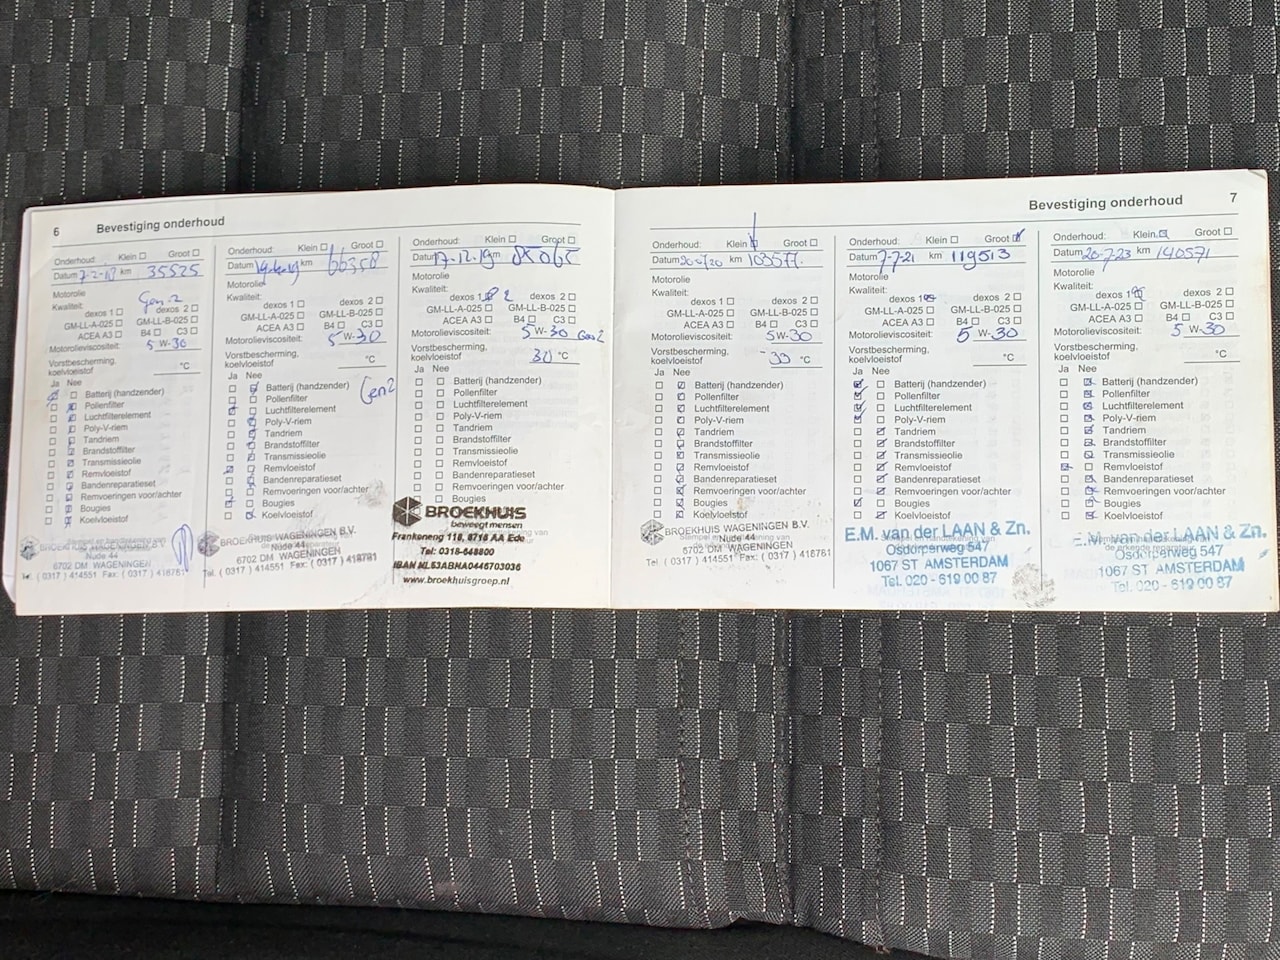 6 Bevestiging onderhoud
Onderhoud: Klein Groot
Datum 7-2-18 km 35525
Motorolie
Kwaliteit: Gen 2
dexos 1 dexos 2
GM-LL-A-025 GM-LL-B-025
ACEA A3 B4 C3
Motorolieviscositeit: 5 W-30
Vorstbescherming, koelvloeistof °C
Ja Nee
Batterij (handzender)
Pollenfilter
Luchtfilterelement
Poly-V-riem
Tandriem
Brandstoffilter
Transmissieolie
Remvloeistof
Bandenreparatieset
Remvoeringen voor/achter
Bougies
Koelvloeistof
BROEKHUIS WAGENINGEN B.V.
Nude 44
6702 DM WAGENINGEN
Tel. ( 0317 ) 414551 Fax: ( 0317 ) 418781
Onderhoud: Klein Groot
Datum km 66358
Motorolie
Kwaliteit:
dexos 1 dexos 2
GM-LL-A-025 GM-LL-B-025
ACEA A3 B4 C3
Motorolieviscositeit: 5 W-30
Vorstbescherming, koelvloeistof °C
Ja Nee
Batterij (handzender) Gen2
Pollenfilter
Luchtfilterelement
Poly-V-riem
Tandriem
Brandstoffilter
Transmissieolie
Remvloeistof
Bandenreparatieset
Remvoeringen voor/achter
Bougies
Koelvloeistof
BROEKHUIS WAGENINGEN B.V.
Nude 44
6702 DM WAGENINGEN
Tel. ( 0317 ) 414551 Fax: ( 0317 ) 418781
Onderhoud: Klein Groot
Datum 17-12-19 km 85065
Motorolie
Kwaliteit:
dexos 1 2 dexos 2
GM-LL-A-025 GM-LL-B-025
ACEA A3 B4 C3
Motorolieviscositeit: 5 W-30 Gen2
Vorstbescherming, koelvloeistof 30 °C
Ja Nee
Batterij (handzender)
Pollenfilter
Luchtfilterelement
Poly-V-riem
Tandriem
Brandstoffilter
Transmissieolie
Remvloeistof
Bandenreparatieset
Remvoeringen voor/achter
Bougies
BROEKHUIS
beweegt mensen
Frankeneng 118, 6716 AA Ede
Tel: 0318-648800
IBAN NL53ABNA0446703036
www.broekhuisgroep.nl
Bevestiging onderhoud 7
Onderhoud: Klein Groot
Datum km 103577
Motorolie
Kwaliteit:
dexos 1 dexos 2
GM-LL-A-025 GM-LL-B-025
ACEA A3 B4 C3
Motorolieviscositeit: 5W-30
Vorstbescherming, koelvloeistof °C
Ja Nee
Batterij (handzender)
Pollenfilter
Luchtfilterelement
Poly-V-riem
Tandriem
Brandstoffilter
Transmissieolie
Remvloeistof
Bandenreparatieset
Remvoeringen voor/achter
Bougies
Koelvloeistof
BROEKHUIS WAGENINGEN B.V.
Nude 44
6702 DM WAGENINGEN
Tel. ( 0317 ) 414551 Fax: ( 0317 ) 418781
Onderhoud: Klein Groot
Datum 7-7-21 km 119513
Motorolie
Kwaliteit:
dexos 1 dexos 2
GM-LL-A-025 GM-LL-B-025
ACEA A3 B4 C3
Motorolieviscositeit: 5 W-30
Vorstbescherming, koelvloeistof °C
Ja Nee
Batterij (handzender)
Pollenfilter
Luchtfilterelement
Poly-V-riem
Tandriem
Brandstoffilter
Transmissieolie
Remvloeistof
Bandenreparatieset
Remvoeringen voor/achter
Bougies
Koelvloeistof
E.M. van der LAAN & Zn.
Osdorperweg 547
1067 ST AMSTERDAM
Tel. 020 - 619 00 87
Onderhoud: Klein Groot
Datum 20-7-23 km 140571
Motorolie
Kwaliteit:
dexos 1 dexos 2
GM-LL-A-025 GM-LL-B-025
ACEA A3 B4 C3
Motorolieviscositeit: 5 W-30
Vorstbescherming, koelvloeistof °C
Ja Nee
Batterij (handzender)
Pollenfilter
Luchtfilterelement
Poly-V-riem
Tandriem
Brandstoffilter
Transmissieolie
Remvloeistof
Bandenreparatieset
Remvoeringen voor/achter
Bougies
Koelvloeistof
E.M. van der LAAN & Zn.
Osdorperweg 547
1067 ST AMSTERDAM
Tel. 020 - 619 00 87